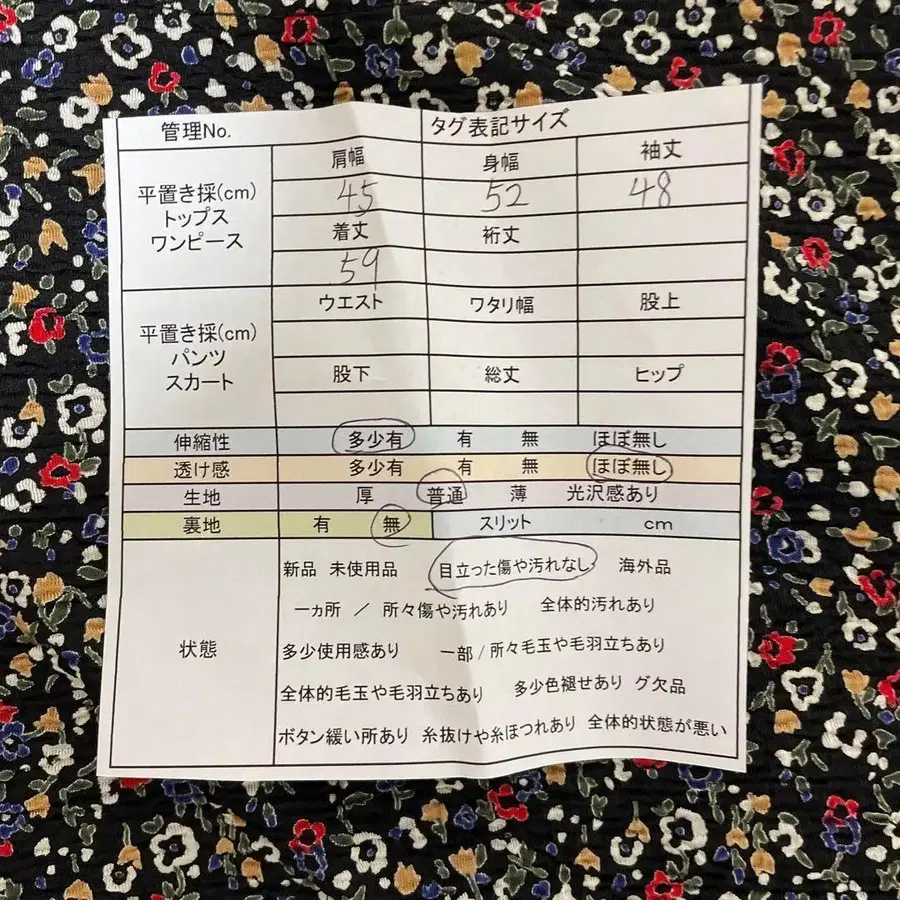 管理No. タグ表記サイズ
平置き採(cm) トップス ワンピース
肩幅 身幅 袖丈
45 52 48
着丈 裄丈
59
平置き採(cm) パンツ スカート
ウエスト ワタリ幅 股上
股下 総丈 ヒップ
伸縮性 多少有 有 無 ほぼ無し
透け感 多少有 有 無 ほぼ無し
生地 厚 普通 薄 光沢感あり
裏地 有 無 スリット cm
状態
新品 未使用品 目立った傷や汚れなし 海外品
一ヵ所 / 所々傷や汚れあり 全体的汚れあり
多少使用感あり 一部 / 所々毛玉や毛羽立ちあり
全体的毛玉や毛羽立ちあり 多少色褪せあり グ欠品
ボタン緩い所あり 糸抜けや糸ほつれあり 全体的状態が悪い